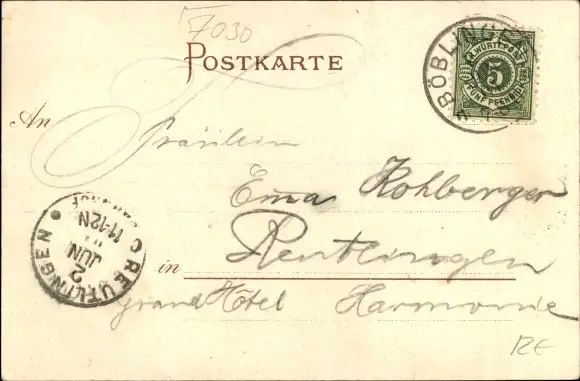 7030
POSTKARTE
BÖBLING
K.WÜRTT.POST
5
FÜNF PFENNIG
An Fräulein
Emma Kohberger
in Reutlingen
Grand Hôtel Harmonie
REUTLINGEN
2
JUN
11-12N
12E